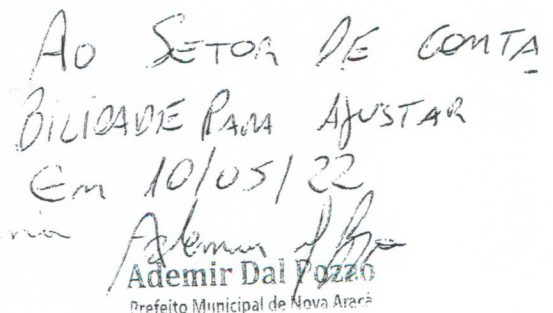 Ao SETOR DE CONTA
BILIDADE PARA AJUSTAR
Em 10/05/22
Ademir Dal Pozzo
Prefeito Municipal de Nova Araçá